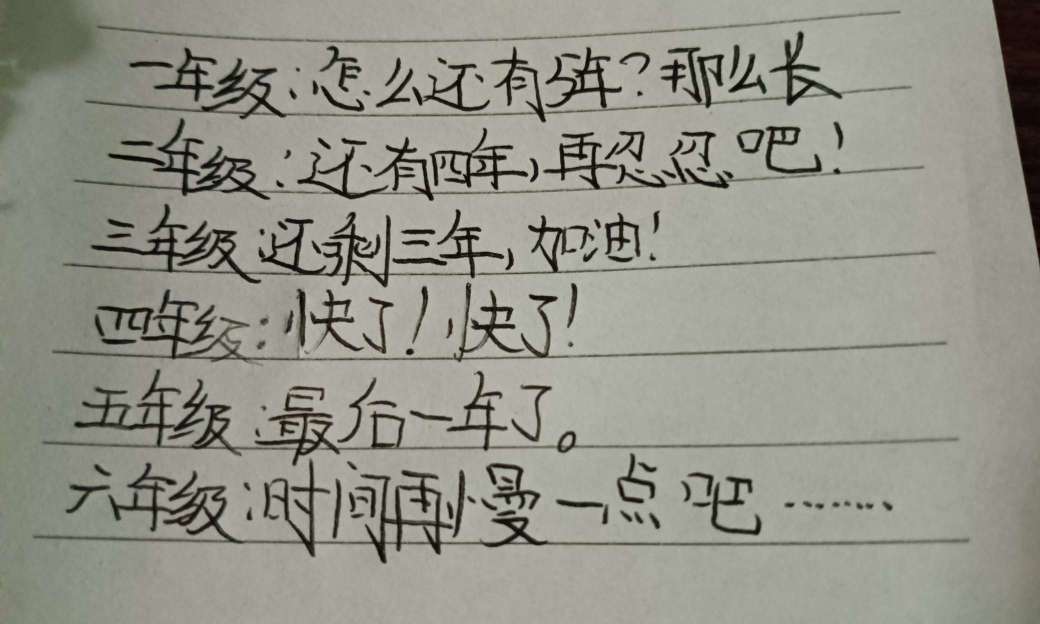 一年级:怎么还有5年?那么长
二年级:还有四年,再忍忍吧!
三年级:还剩三年,加油!
四年级:快了!快了!
五年级:最后一年了。
六年级:时间再慢一点吧……